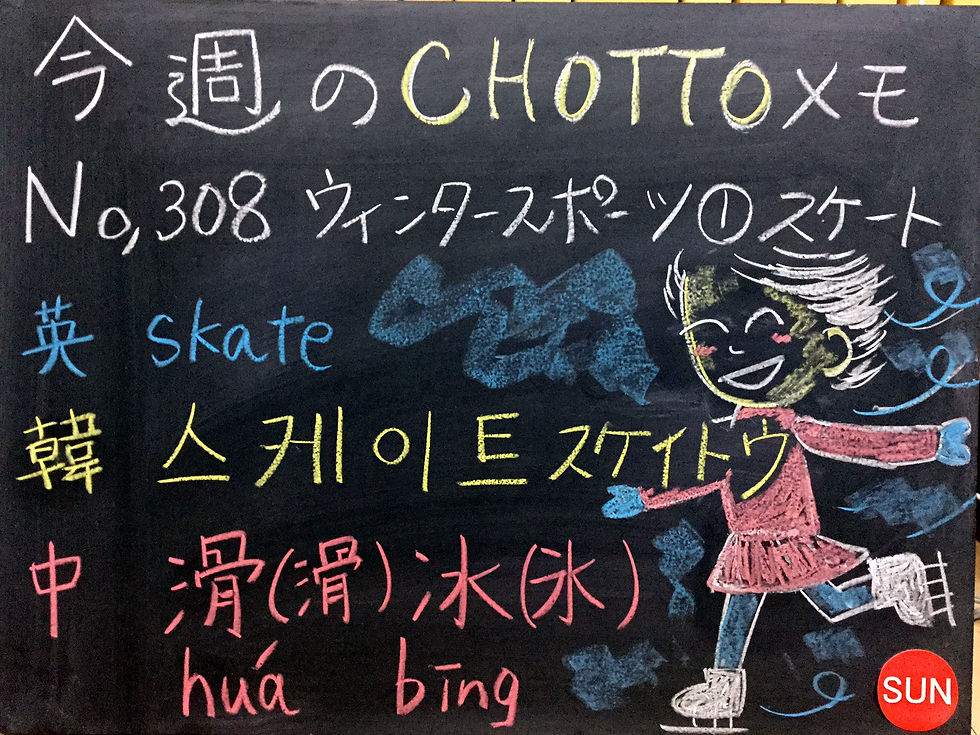 今週のCHOTTOメモ
No,308 ウィンタースポーツ①スケート
英 skate
韓 스케이트 スケイトウ
中 滑(滑)冰(氷)
huá bīng
SUN